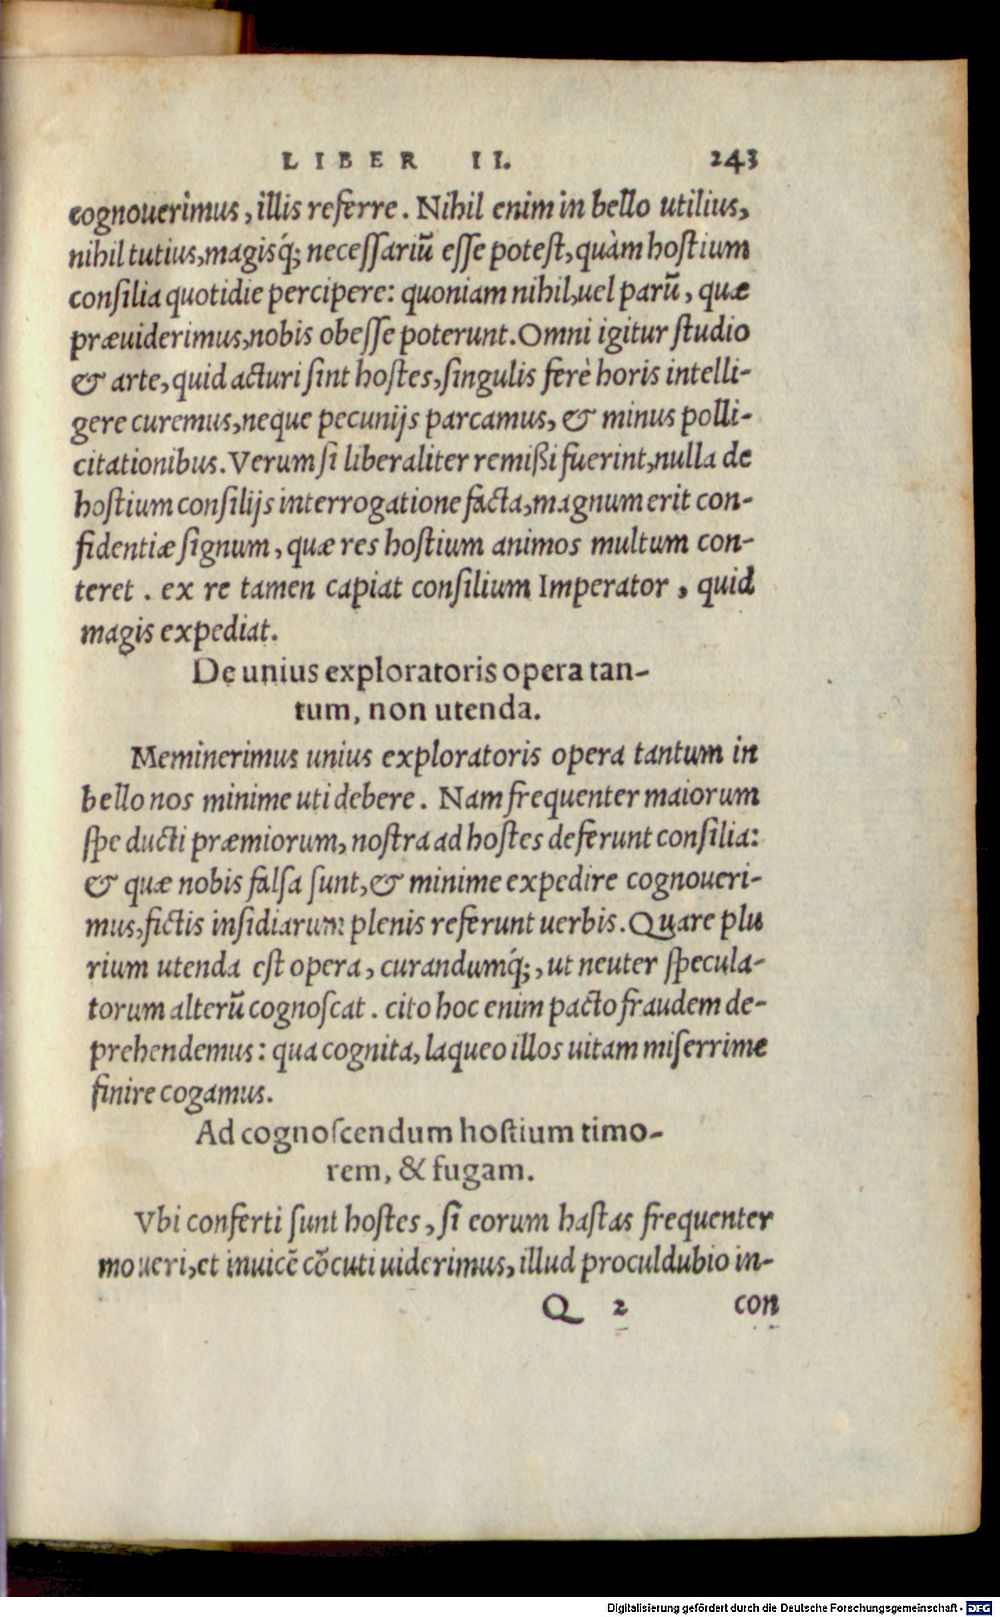 LIBER II. 243
cognouerimus, illis referre. Nihil enim in bello utilius,
nihil tutius, magisq́; neceſſariũ eſſe poteſt, quàm hoſtium
conſilia quotidie percipere: quoniam nihil, uel parũ, quæ
præuiderimus, nobis obeſſe poterunt. Omni igitur ſtudio
& arte, quid acturi ſint hoſtes, ſingulis ferè horis intelli-
gere curemus, neque pecunijs parcamus, & minus polli-
citationibus. Verum ſi liberaliter remißi fuerint, nulla de
hoſtium conſilijs interrogatione facta, magnum erit con-
fidentiæ ſignum, quæ res hoſtium animos multum con-
teret. ex re tamen capiat conſilium Imperator, quid
magis expediat.
De unius exploratoris opera tan-
tum, non utenda.
Meminerimus unius exploratoris opera tantum in
bello nos minime uti debere. Nam frequenter maiorum
ſpe ducti præmiorum, noſtra ad hoſtes deferunt conſilia:
& quæ nobis falſa ſunt, & minime expedire cognoueri-
mus, fictis inſidiarum plenis referunt uerbis. Quare plu
rium utenda eſt opera, curandumq́;, ut neuter ſpecula-
torum alterũ cognoſcat. cito hoc enim pacto fraudem de-
prehendemus: qua cognita, laqueo illos uitam miſerrime
finire cogamus.
Ad cognoſcendum hoſtium timo-
rem, & fugam.
Vbi conferti ſunt hoſtes, ſi eorum haſtas frequenter
moueri, et inuicẽ cõcuti uiderimus, illud proculdubio in-
Q 2 con
Digitalisierung gefördert durch die Deutsche Forschungsgemeinschaft - DFG